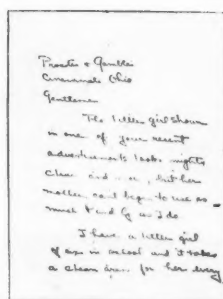 Procter & Gamble
Cincinnati Ohio
Gentlemen
The little girl shown
in one of your recent
advertisements looks mighty
clean and but her
mother can't begin to use as
much P and G as I do
I have a little girl
of six in school and it takes
a clean dress for her every